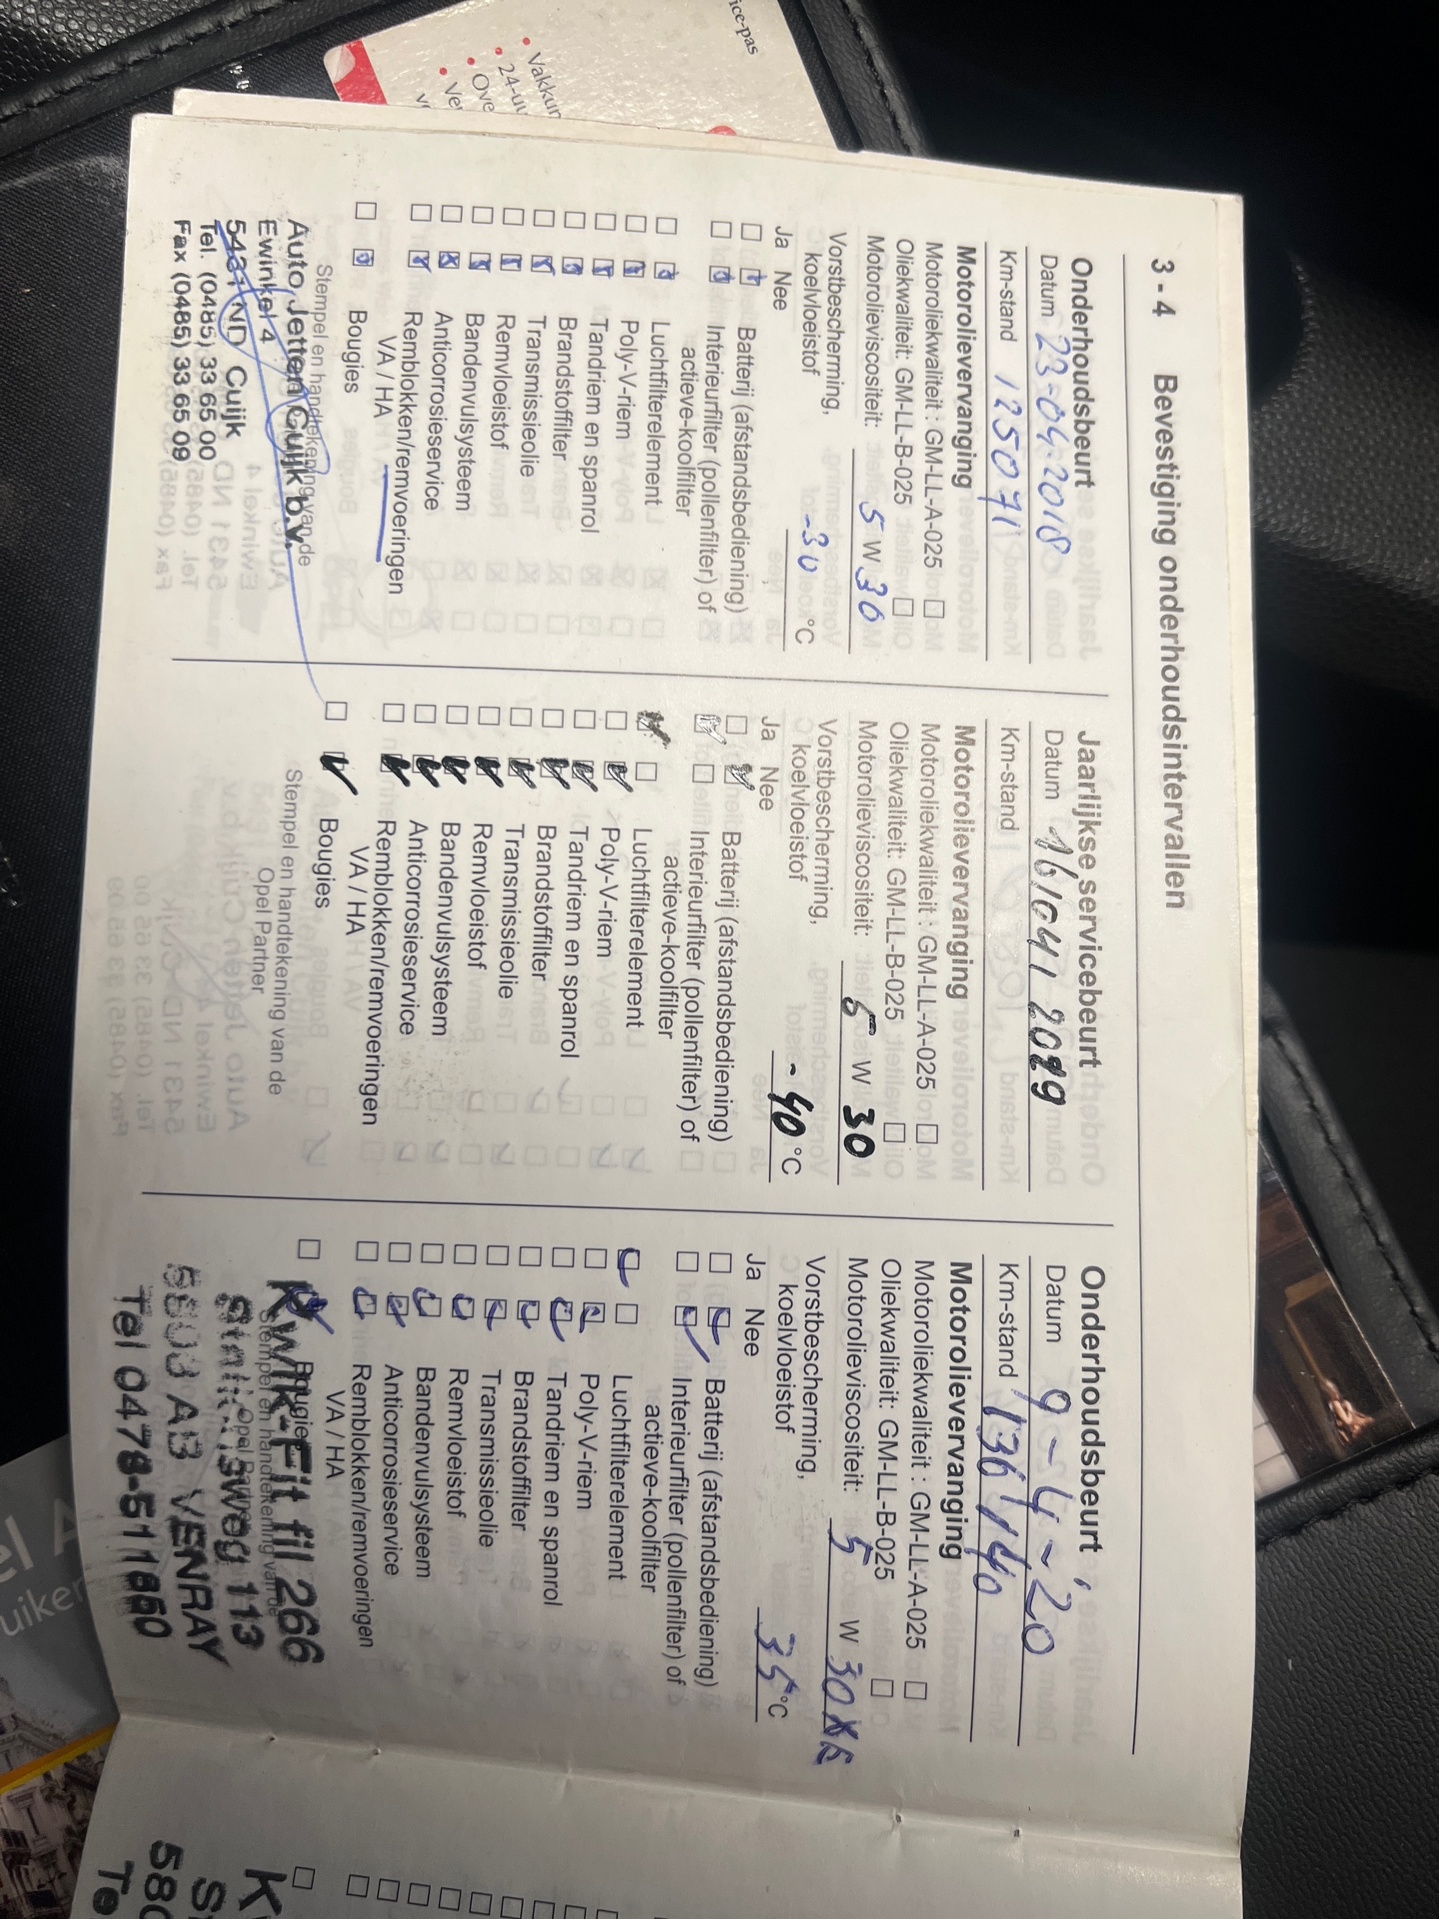 ice-pas
• Vakkun
• 24-uu
• Ove
• Ve
3 - 4 Bevestiging onderhoudsintervallen
Onderhoudsbeurt
Datum 23-04-2018
Km-stand 125071
Motorolievervanging
Motoroliekwaliteit : GM-LL-A-025 ☐
Oliekwaliteit: GM-LL-B-025 ☐
Motorolieviscositeit: 5 W 30
Vorstbescherming,
koelvloeistof -30 °C
Ja Nee
Batterij (afstandsbediening)
Interieurfilter (pollenfilter) of
actieve-koolfilter
Luchtfilterelement
Poly-V-riem
Tandriem en spanrol
Brandstoffilter
Transmissieolie
Remvloeistof
Bandenvulsysteem
Anticorrosieservice
Remblokken/remvoeringen
VA / HA
Bougies
Stempel en handtekening van de
Auto Jetten Cuijk b.v.
Ewinkel 4
5431 ND Cuijk
Tel. (0485) 33 65 00
Fax (0485) 33 65 09
Jaarlijkse servicebeurt
Datum 16/04/2019
Km-stand
Motorolievervanging
Motoroliekwaliteit : GM-LL-A-025 ☐
Oliekwaliteit: GM-LL-B-025 ☐
Motorolieviscositeit: 5 W 30
Vorstbescherming,
koelvloeistof -40 °C
Ja Nee
Batterij (afstandsbediening)
Interieurfilter (pollenfilter) of
actieve-koolfilter
Luchtfilterelement
Poly-V-riem
Tandriem en spanrol
Brandstoffilter
Transmissieolie
Remvloeistof
Bandenvulsysteem
Anticorrosieservice
Remblokken/remvoeringen
VA / HA
Bougies
Stempel en handtekening van de
Opel Partner
Onderhoudsbeurt
Datum 9-4-20
Km-stand 136140
Motorolievervanging
Motoroliekwaliteit : GM-LL-A-025 ☐
Oliekwaliteit: GM-LL-B-025 ☐
Motorolieviscositeit: 5 W 30
Vorstbescherming,
koelvloeistof 35 °C
Ja Nee
Batterij (afstandsbediening)
Interieurfilter (pollenfilter) of
actieve-koolfilter
Luchtfilterelement
Poly-V-riem
Tandriem en spanrol
Brandstoffilter
Transmissieolie
Remvloeistof
Bandenvulsysteem
Anticorrosieservice
Remblokken/remvoeringen
VA / HA
Bougies
Stempel en handtekening van de
Opel Partner
Kwik-Fit fil 266
113
5803 AB VENRAY
Tel 0478-511650
el A
uiker
K
S
580
Te